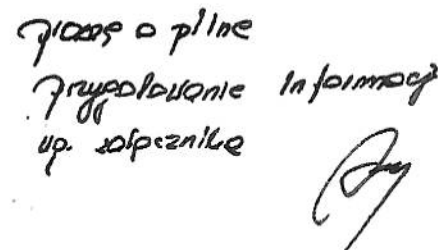 Proszę o pilne
przygotowanie informacji
wg. załącznika